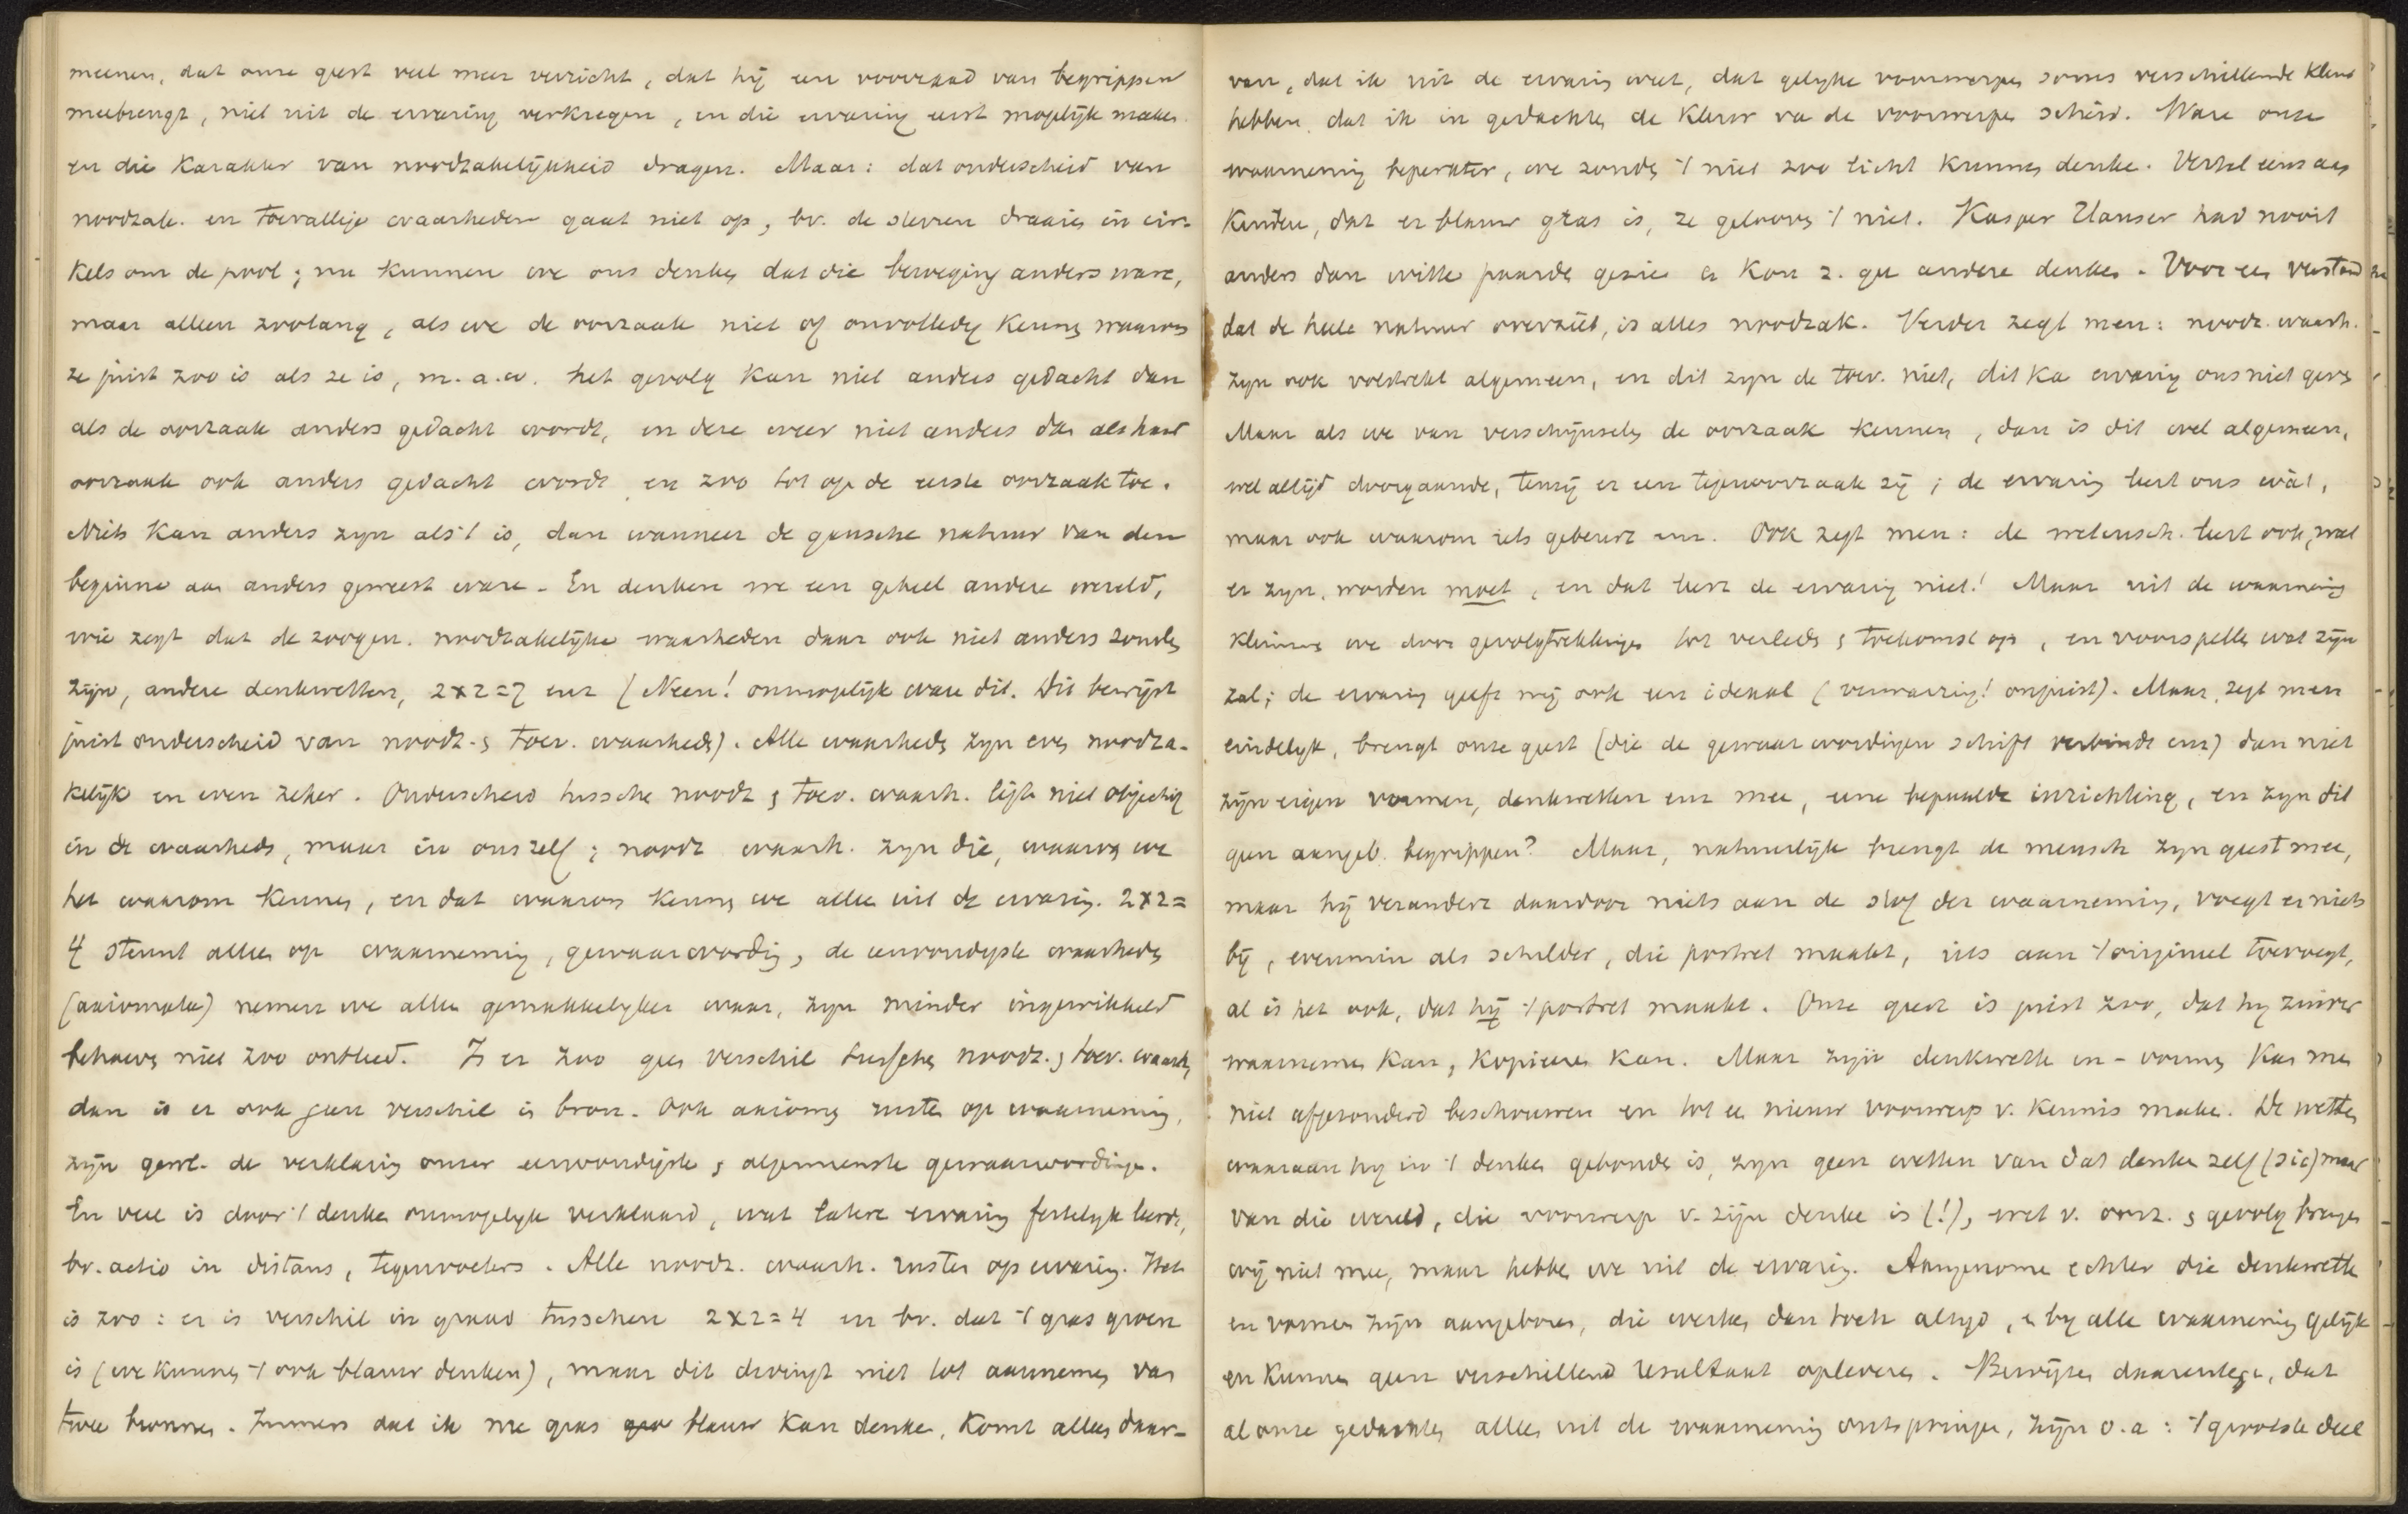 meenen, dat onze geest veel meer verricht, dat hij een voorraad van begrippen
meebrengt, niet uit de ervaring verkregen, en die ervaring eerst mogelijk maken
en die karakter van noodzakelijkheid dragen. Maar: dat onderscheid van
noodzak. en toevallige waarheden gaat niet op, bv. de sterren draaien in cir-
kels om de pool; nu kunnen we ons denken dat die beweging anders ware,
maar alleen zoolang, als we de oorzaak niet of onvolledig kennen waarom
ze juist zoo is als ze is, m.a.w. het gevolg kan niet anders gedacht dan
als de oorzaak anders gedacht wordt, en deze weer niet anders dan als haar
oorzaak ook anders gedacht wordt en zoo tot op de eerste oorzaak toe.
Niets kan anders zijn als 't is, dan wanneer de gansche natuur van den
beginne aan anders geweest ware - En denken we een geheel andere wereld,
wie zegt dat de zoogen. noodzakelijke waarheden daar ook niet anders zouden
zijn, andere denkwetten, 2x2=7 enz (Neen! onmogelijk ware dit. Dit bewijst
juist onderscheid van noodz. & toev. waarheden). Alle waarheden zijn even noodza-
kelijk en even zeker. Onderscheid tussche noodz & toev. waarh. ligt niet objectief
in de waarheden, maar in ons zelf; noodz waarh. zijn die, waarvan we
het waarom kennen, en dat waarom kennen we alleen uit de ervaring. 2x2=
4 steunt alleen op waarneming, gewaarwording, de eenvoudigste waarheden
(axiomata) nemen we alleen gemakkelijker waar, zijn minder ingewikkeld
behoeven niet zoo ontleed. Is er zoo geen verschil tusschen noodz. & toev. waarh,
dan is er ook geen verschil in bron. Ook axioma's rusten op waarneming,
zijn de verklaring onzer eenvoudigste & algemeenste gewaarwordingen.
En veel is door 't denken onmogelijk verklaard, wat latere ervaring feitelijk leerde,
bv. actio in distans, tegenvoeters. Alle noodz. waarh. rusten op ervaring. Het
is zoo: er is verschil in graad tusschen 2x2=4 en bv. dat 't gras groen
is (we kunnen 't ook blauw denken), maar dit dwingt niet tot aannemen van
twee bronnen. Immers dat ik me gras blauw kan denken, komt alleen daar-
van, dat ik uit de ervaring weet, dat gelijke voorwerpen soms verschillende kleur
hebben, dat ik in gedachte de kleur van de voorwerpen scheid. Ware onze
waarneming beperkter, we zouden 't niet zoo licht kunnen denken. Vertel eens aan
kinderen, dat er blauw gras is, ze gelooven 't niet. Kasper Hauser had nooit
anders dan witte paarden gezien en kon z. geen andere denken. Voor een verstand
dat de heele natuur overziet, is alles noodzak. Verder zegt men: noodz. waarh.
zijn ook volstrekt algemeen, en dit zijn de toev. niet, dit kan ervaring ons niet geven
Maar als we van verschijnselen de oorzaak kennen, dan is dit wel algemeen,
wel altijd doorgaande, tenzij er een tegenoorzaak zij; de ervaring leert ons wát,
maar ook waarom iets gebeurt enz. Ook zegt men: de wetensch. leert ook, wat
er zijn, worden moet, en dat leert de ervaring niet! Maar uit de waarneming
klimmen we door gevolgtrekkingen tot verleden & toekomst op, en voorspellen wat zijn
zal; de ervaring geeft mij ook een ideaal (verwarring! onjuist). Maar, zegt men
eindelijk, brengt onze geest (die de gewaarwordingen schift verbindt enz) dan niet
zijn eigen vormen, denkwetten enz mee, eene bepaalde inrichting, en zijn dit
geen aangeb. begrippen? Maar, natuurlijk brengt de mensch zijn geest mee,
maar hij verandert daardoor niets aan de stof der waarneming, voegt er niets
bij, evenmin als schilder, die portret maakt, iets aan 't origineel toevoegt,
al is het ook, dat hij 't portret maakt. Onze geest is juist zoo, dat hij zuiver
waarnemen kan, kopieeren kan. Maar zijn denkwetten en -vormen kan men
niet afgezonderd beschouwen en tot een nieuw voorwerp v. kennis maken. De wetten
waaraan hij in 't denken gebonden is, zijn geen wetten van dat denken zelf (sic) maar
van die wereld, die voorwerp v. zijn denken is (!), wet v. oorz. & gevolg brengen
wij niet mee, maar hebben we uit de ervaring. Aangenomen echter die denkwetten
en vormen zijn aangeboren, die werken dan toch altijd, en bij alle waarneming gelijk
en kunnen geen verschillend resultaat opleveren. Bewijzen daarentegen, dat
al onze gedachten alleen uit de waarneming ontspringen, zijn o.a: 't grootste deel